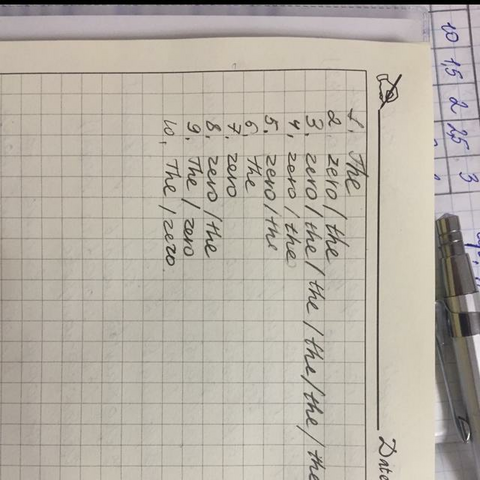 Date
1. The
2 zero / the
3. zero / the / the / the / the / the
4, zero / the
5. zero / the
6, the
7. zero
8. zero / the
9. The / zero
10, The / zero.
10 1,5 2 2,5 3